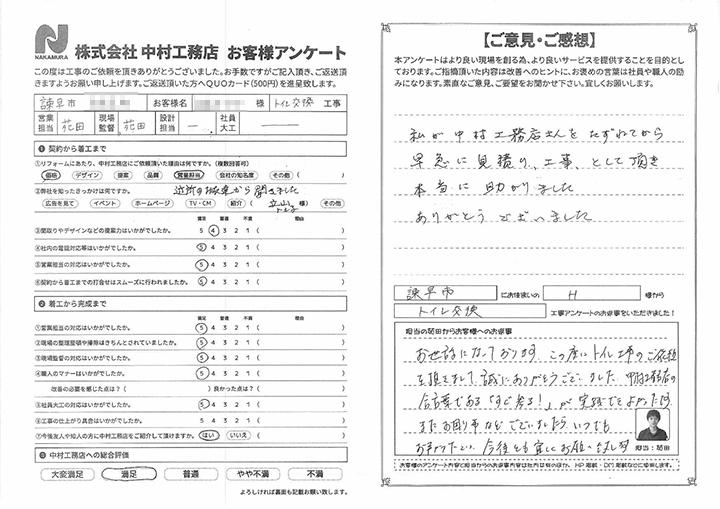 NAKAMURA
株式会社 中村工務店 お客様アンケート
この度は工事のご依頼を頂きありがとうございました。お手数ですがご記入頂き、ご返送頂
きますようお願い申し上げます。ご返送頂いた方へQUOカード(500円)を進呈致します。
諫早市 お客様名 様 トイレ交換 工事
営業担当 苑田 現場監督 苑田 設計担当 — 社員大工 —
❶ 契約から着工まで
①リフォームにあたり、中村工務店にご依頼頂いた理由は何ですか。(複数回答可)
価格 デザイン 提案 品質 営業担当 会社の知名度 その他 ( )
②弊社を知ったきっかけは何ですか。
広告を見て イベント ホームページ TV・CM 紹介 ( 様) その他
満足 普通 不満 理由
③間取りやデザインなどの提案力はいかがでしたか。 5 4 3 2 1 ( )
④社内の電話対応等はいかがでしたか。 5 4 3 2 1 ( )
⑤営業担当の対応はいかがでしたか。 5 4 3 2 1 ( )
⑥契約から着工までの打合せはスムーズに行われましたか。 5 4 3 2 1 ( )
❷ 着工から完成まで
満足 普通 不満 理由
①営業担当の対応はいかがでしたか。 5 4 3 2 1 ( )
②現場の整理整頓や掃除はきちんとされていましたか。 5 4 3 2 1 ( )
③現場監督の対応はいかがでしたか。 5 4 3 2 1 ( )
④職人のマナーはいかがでしたか。 5 4 3 2 1 ( )
改善の必要を感じた点は?( )良かった点は?( )
⑤社員大工の対応はいかがでしたか。 5 4 3 2 1 ( )
⑥工事の仕上がり具合はいかがでしたか。 5 4 3 2 1 ( )
⑦今後友人や知人の方に中村工務店をご紹介して頂けますか。 はい いいえ ( )
❸ 中村工務店への総合評価
大変満足 満足 普通 やや不満 不満
よろしければ裏面も記載お願い致します。
【ご意見・ご感想】
本アンケートはより良い現場を創る為、より良いサービスを提供することを目的とし
ております。ご指摘頂いた内容は改善へのヒントに、お褒めの言葉は社員や職人の励
みになります。素直なご意見、ご要望をお聞かせ下さい。宜しくお願いします。
私が中村工務店さんをたずねてから
早急に見積り、工事、として頂き
本当に助かりました
ありがとうございました
諫早市 にお住まいの H 様から
トイレ交換 工事アンケートのお返事をいただきました!
担当の苑田からお客様へのお返事
お世話になっております。この度はトイレ工事のご依頼
を頂きまして、誠にありがとうございました。中村工務店の
合言葉である「すぐ来る!」が実践できてよかったです。
またお困り事などございましたら、いつでも
今後とも宜しくお願い致します
担当:苑田